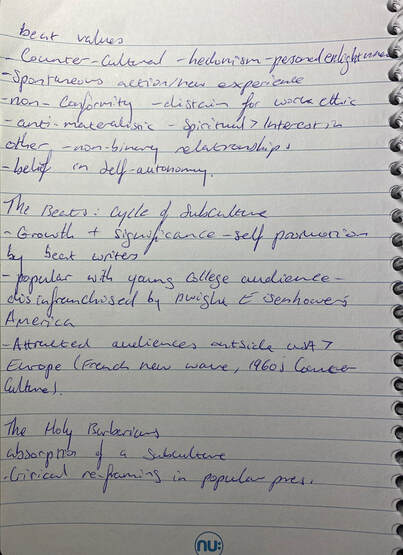 beat values
- Counter-Cultural - hedonism - personal enlightenment
- Spontaneous action/new experience
- non-conformity - distain for work ethic
- anti-materalistic - Spiritual > Interest in
other - non-binary relationships
- belief in self-autonomy.
The Beats: Cycle of Subculture
- Growth + significance - self promotion
by beat writers
- popular with young college audience -
disinfranchised by Dwight Eisenhower's
America
- Attracted audiences outside USA >
Europe (French new wave, 1960s Counter
Culture).
The Holy Barbarians
absorption of a subculture
- Critical re-framing in popular press.
nu: